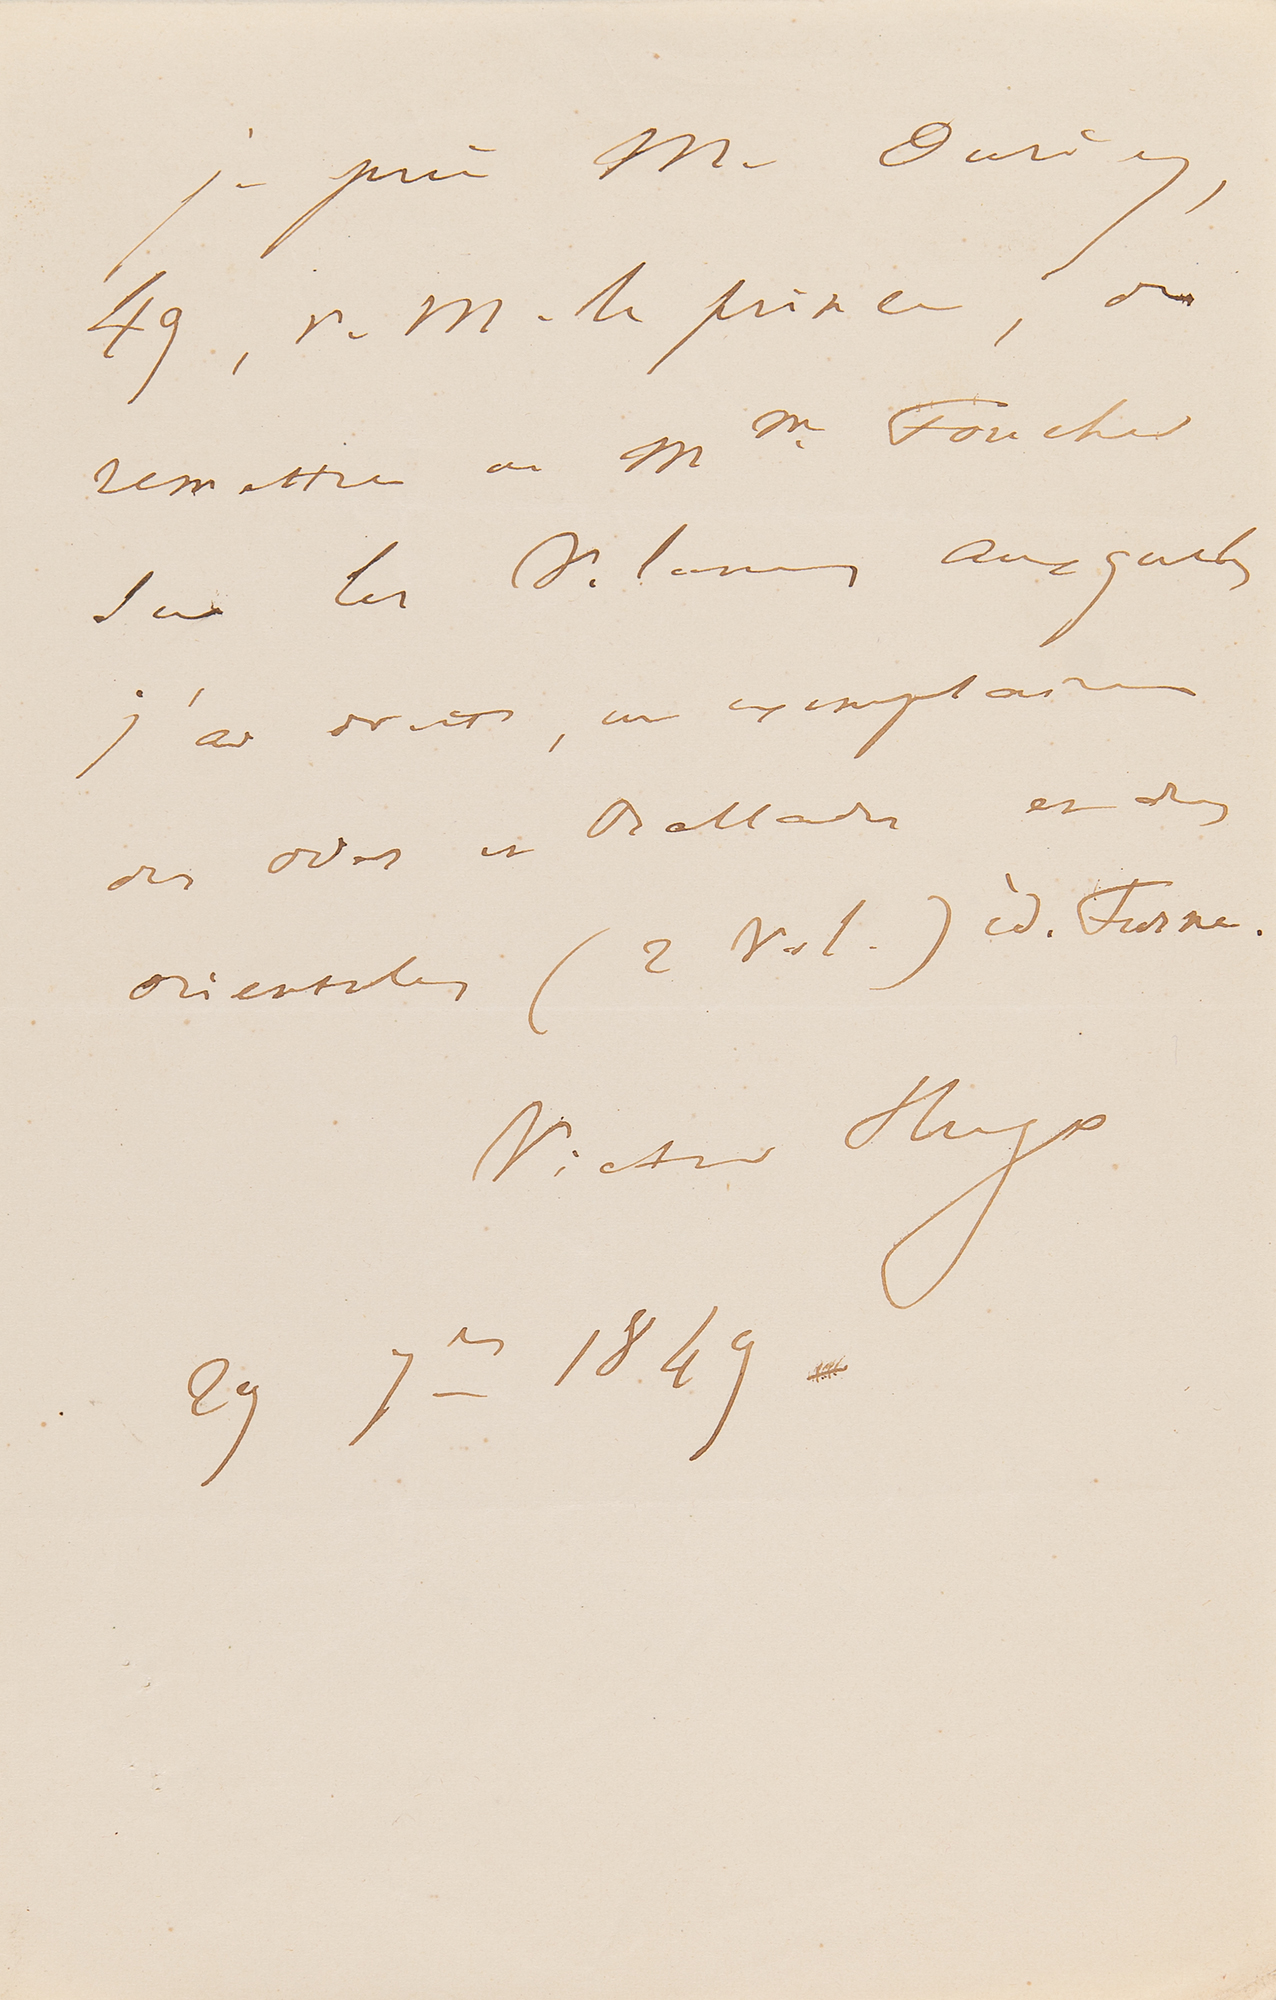 je prie M. Duriez,
49, r. M. le prince, de
remettre à Mme Foucher
sur les volumes auxquels
j'ai droit, un exemplaire
des odes et Ballades et des
orientales (2 vol.) éd. Furne.
Victor Hugo
29 7bre 1849